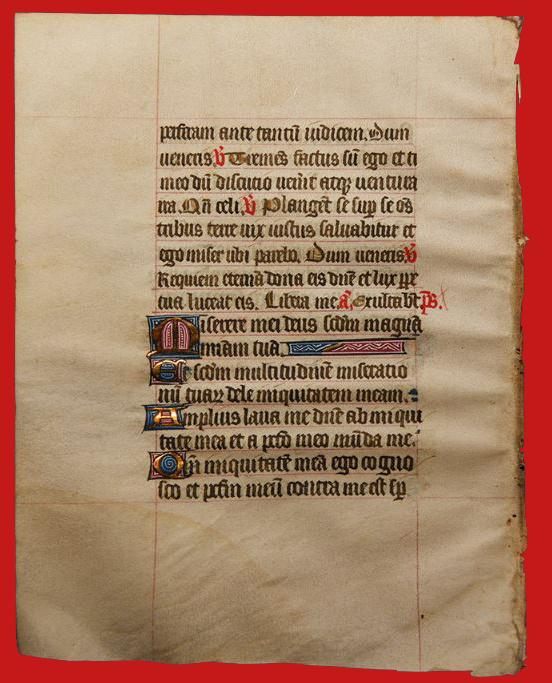 ante tantū iudicem. Dum
ueneris ℣ Tremēs factus sū ego et ti
meo dū discutio uenit atq; uentura
ira. Qñ celi. ℣ Planget se sup se oēs
tribus terre uix iustus saluabitur et
ego miser ubi parebo. Dum ueneris ℣
Requiem eternā dona eis dñe et lux ppe
tua luceat eis. Libera me. a, Exultabt. ps.
Miserere mei deus scdm magnā
miam tuā.
Et scdm multitudinē miseratio
nū tuaꝝ dele iniquitatem meam.
Amplius laua me dñe ab iniqui
tate mea et a meo mūda me.
Qm̄ iniquitatē meā ego cogno
sco et meū contra me est sp